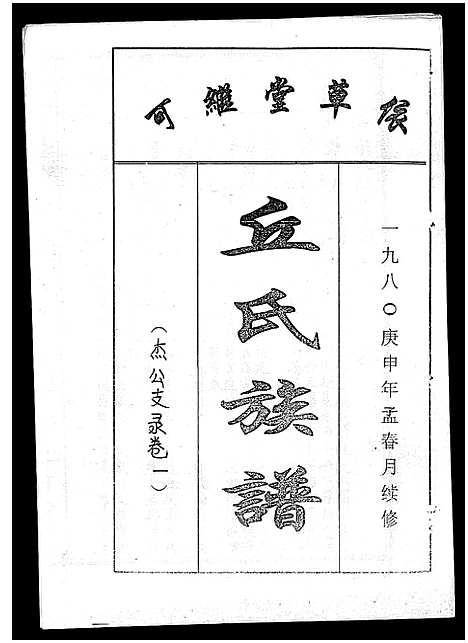 草堂繼可
一九八〇庚申年孟春月续修
丘氏族譜
（杰公支录卷一）